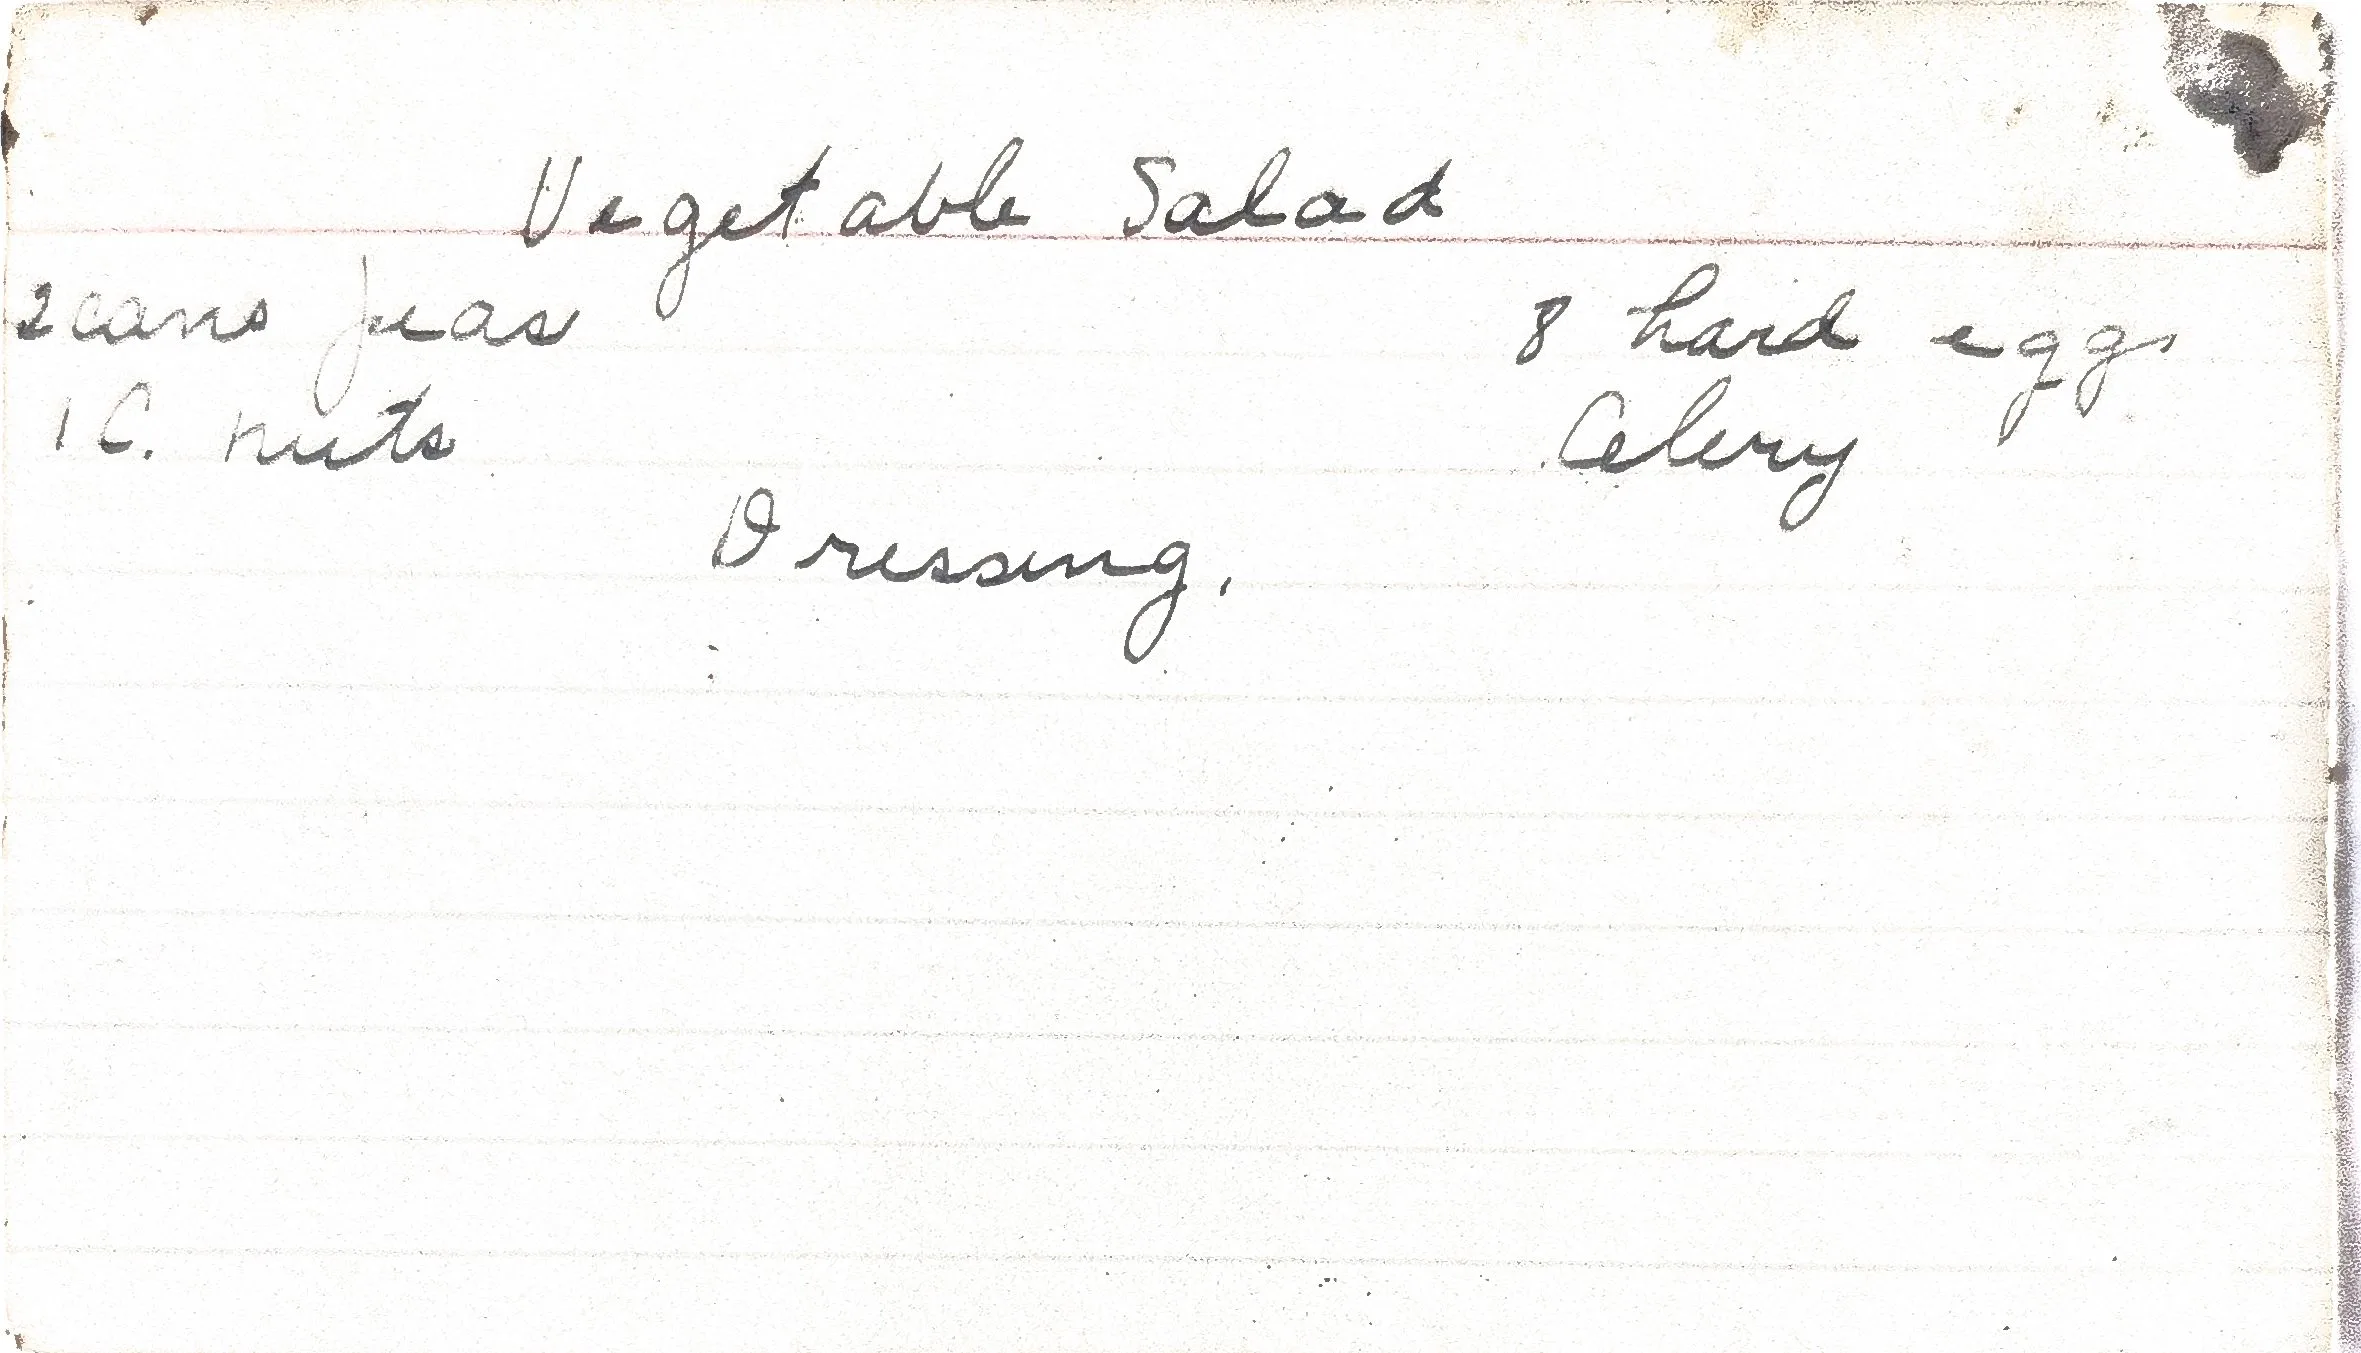 Vegetable Salad
2 cans peas 8 hard eggs
1 C. nuts Celery
Dressing.